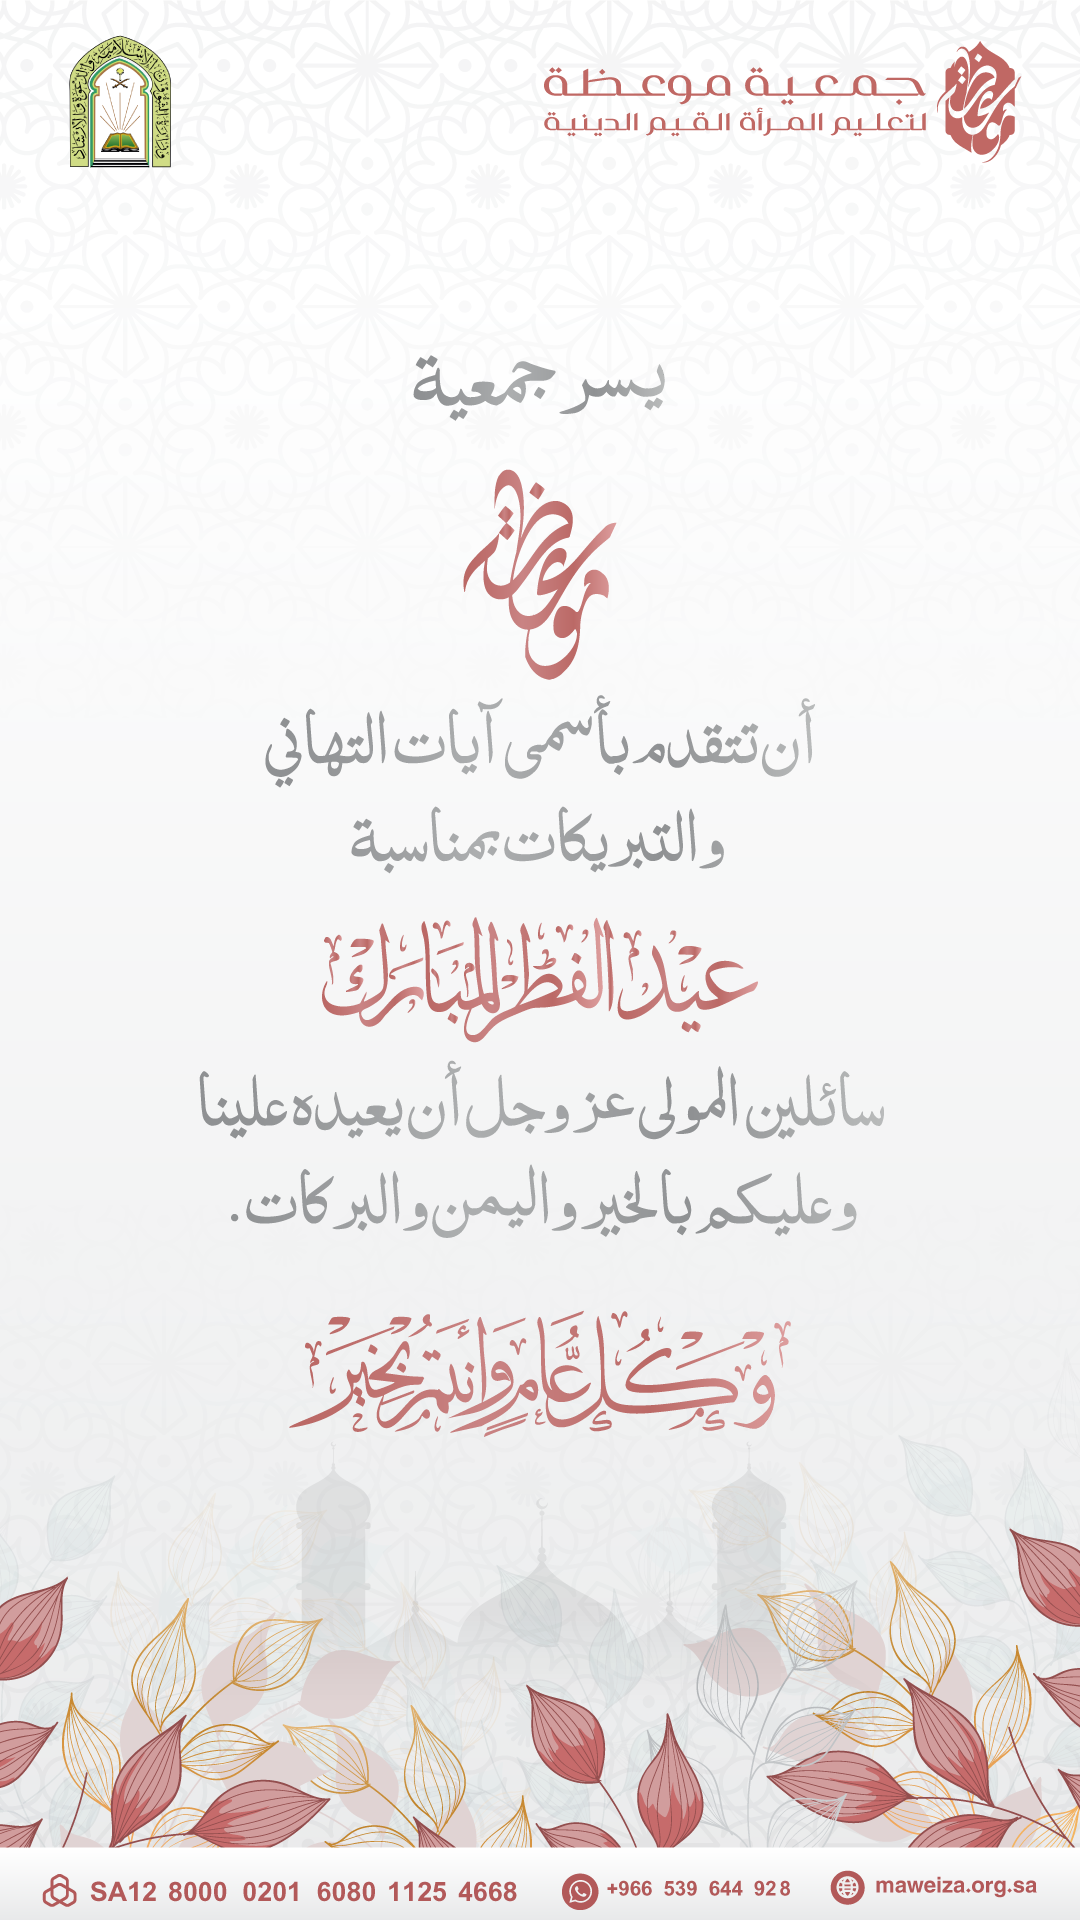 جمعية موعظة
لتعليم المرأة القيم الدينية
يسر جمعية
موعظة
أن تتقدم بأسمى آيات التهاني
والتبريكات بمناسبة
عيد الفطر المبارك
سائلين المولى عز وجل أن يعيده علينا
وعليكم بالخير واليمن والبركات.
وكل عام وأنتم بخير
SA12 8000 0201 6080 1125 4668
+966 539 644 928
maweiza.org.sa